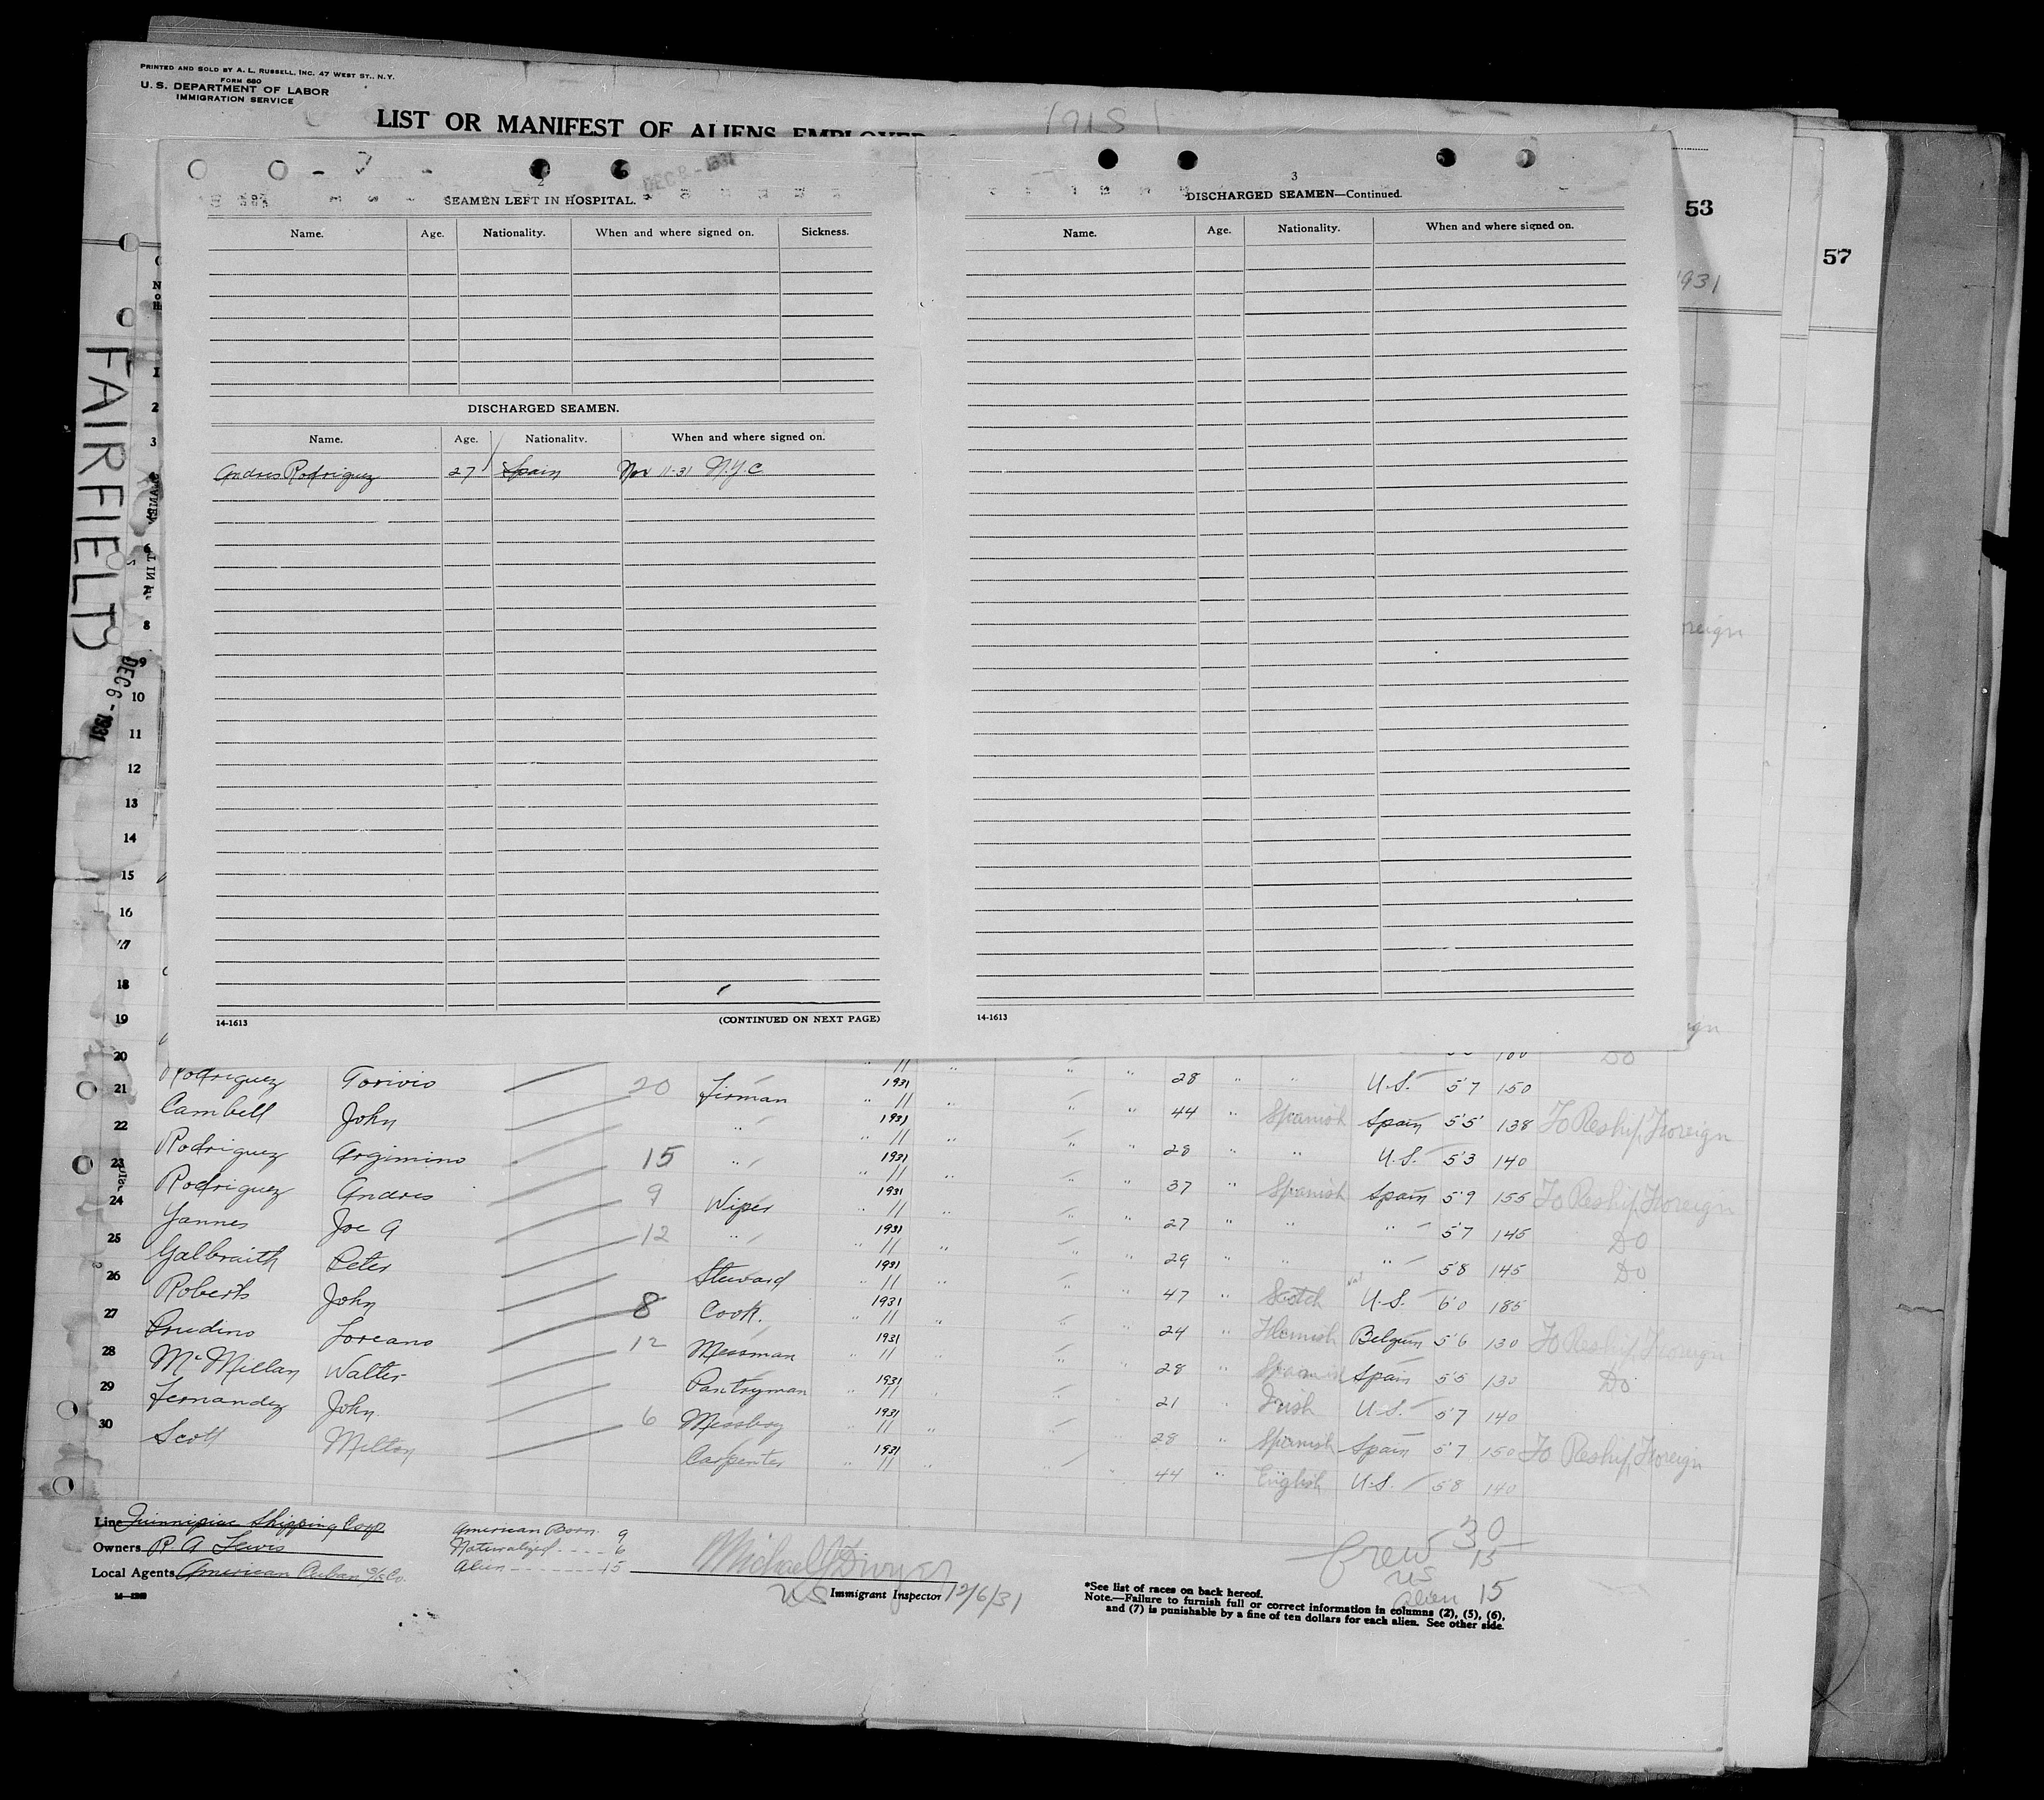 PRINTED AND SOLD BY A. L. RUSSELL, INC. 47 WEST ST., N.Y.
FORM 680
U. S. DEPARTMENT OF LABOR
IMMIGRATION SERVICE
LIST OR MANIFEST OF ALIENS EMPLOYED
53
57
1931
FAIRFIELD
DEC 6 - 1931
DEC 8 - 1931
2
SEAMEN LEFT IN HOSPITAL.
Name. Age. Nationality. When and where signed on. Sickness.
DISCHARGED SEAMEN.
Name. Age. Nationality. When and where signed on.
Andres Rodriguez 27 Spain Nov 11-31 N.Y.C.
14-1613 (CONTINUED ON NEXT PAGE)
3
DISCHARGED SEAMEN—Continued.
Name. Age. Nationality. When and where signed on.
14-1613
2
3
8
9
10
11
12
13
14
15
16
17
18
19
20 Do
21 Rodriguez Torivio 20 Firman 11 1931 " " 28 " " U.S. 5'7 150
22 Cambell John " 11 1931 " " 44 " Spanish Spain 5'5 138 To Reship Foreign
23 Rodriguez Argimino 15 " 11 1931 " " 28 " " U.S. 5'3 140
24 Rodriguez Andres 9 Wiper 11 1931 " " 37 " Spanish Spain 5'9 155 To Reship Foreign
25 Yannes Joe A 12 " 11 1931 " " 27 " " " 5'7 145 Do
26 Galbraith Peter Steward 11 1931 " " 29 " " " 5'8 145 Do
27 Roberts John 8 Cook. 11 1931 " " 47 " Scotch Nat U.S. 6'0 185
28 Prudino Loreano 12 Messman 11 1931 " " 24 " Flemish Belgum 5'6 130 To Reship Foreign
29 McMillan Walter Pantryman 11 1931 " " 28 " Spanish Spain 5'5 130 Do
30 Fernandez John 6 Messboy 11 1931 " " 21 " Irish U.S. 5'7 140
Scott Milton Carpenter 11 1931 " " 28 " Spanish Spain 5'7 150 To Reship Foreign
44 " English U.S. 5'8 140
Line Quinnipiac Shipping Corp
Owners R. A Lewis
Local Agents American Cuban S/S Co.
American Born 9
Naturalized ---- 6
Alien ------- 15
Michael J Dwyer
US Immigrant Inspector 12/6/31
Crew 30
US 15
Alien 15
*See list of races on back hereof.
Note.—Failure to furnish full or correct information in columns (2), (5), (6),
and (7) is punishable by a fine of ten dollars for each alien. See other side.